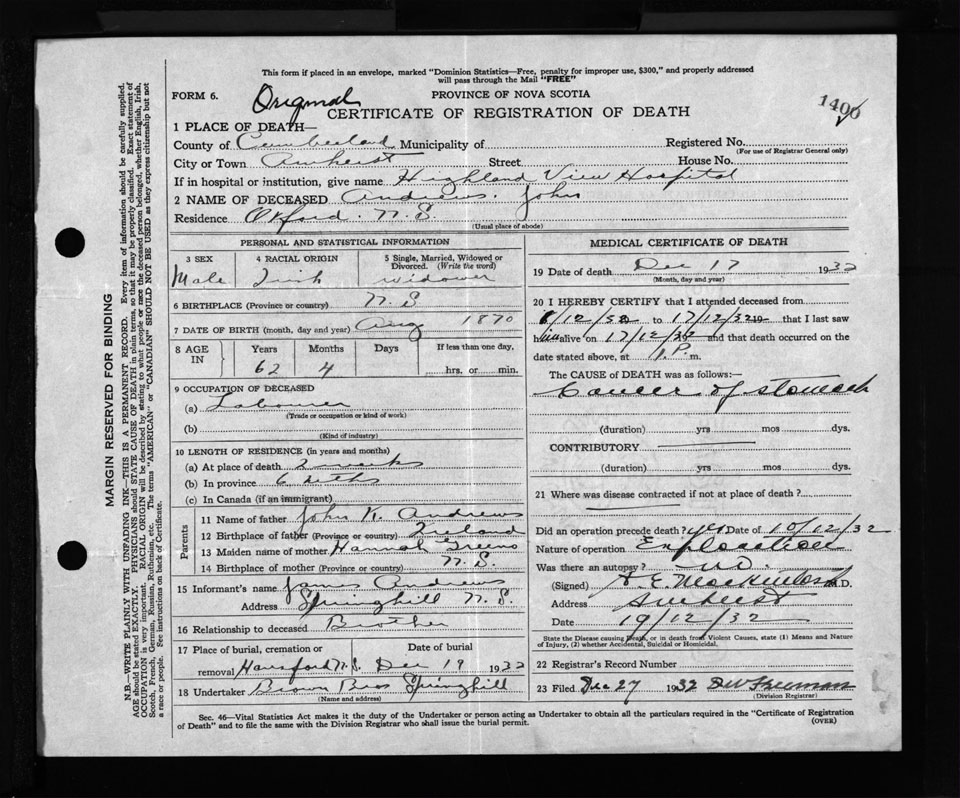 This form if placed in an envelope, marked "Dominion Statistics—Free, penalty for improper use, $300," and properly addressed
will pass through the Mail "FREE"
FORM 6. Original PROVINCE OF NOVA SCOTIA
CERTIFICATE OF REGISTRATION OF DEATH
1 PLACE OF DEATH—
County of Cumberland Municipality of Registered No.
(For use of Registrar General only)
City or Town Amherst Street House No.
If in hospital or institution, give name Highland View Hospital
2 NAME OF DECEASED Andrews. John
Residence Oxford. N.S.
(Usual place of abode)
PERSONAL AND STATISTICAL INFORMATION
3 SEX 4 RACIAL ORIGIN 5 Single, Married, Widowed or
Divorced. (Write the word)
Male Irish widower
6 BIRTHPLACE (Province or country) N.S
7 DATE OF BIRTH (month, day and year) Aug 1870
8 AGE IN Years Months Days If less than one day,
62 4 hrs. or min.
9 OCCUPATION OF DECEASED
(a) Labourer
(Trade or occupation or kind of work)
(b)
(Kind of industry)
10 LENGTH OF RESIDENCE (in years and months)
(a) At place of death 2 weeks
(b) In province
(c) In Canada (if an immigrant)
Parents
11 Name of father John K. Andrews
12 Birthplace of father (Province or country) Ireland
13 Maiden name of mother Hannah Greeno
14 Birthplace of mother (Province or country) N.S.
15 Informant's name James Andrews
Address Springhill N.S.
16 Relationship to deceased Brother
17 Place of burial, cremation or Date of burial
removal Hansford N.S. Dec 19 1932
18 Undertaker Brown Bros Springhill
(Name and address)
MEDICAL CERTIFICATE OF DEATH
19 Date of death Dec 17 1932
(Month, day and year)
20 I HEREBY CERTIFY that I attended deceased from
to 17/12/32 19 that I last saw
him alive on 17/12/32 and that death occurred on the
date stated above, at 1. P. m.
The CAUSE of DEATH was as follows:—
Cancer of stomach
(duration) yrs mos dys.
CONTRIBUTORY
(duration) yrs mos dys.
21 Where was disease contracted if not at place of death?
Did an operation precede death? yes Date of 10/12/32
Nature of operation Exploration
Was there an autopsy? no.
(Signed) A. E. Mackintosh M.D.
Address Amherst
Date 19/12/32
State the Disease causing Death, or in death from Violent Causes, state (1) Means and Nature
of Injury, (2) whether Accidental, Suicidal or Homicidal.
22 Registrar's Record Number
23 Filed Dec 27 1932 Freeman
(Division Registrar)
Sec. 46—Vital Statistics Act makes it the duty of the Undertaker or person acting as Undertaker to obtain all the particulars required in the "Certificate of Registration
of Death" and to file the same with the Division Registrar who shall issue the burial permit. (OVER)
MARGIN RESERVED FOR BINDING
N.B.—WRITE PLAINLY WITH UNFADING INK—THIS IS A PERMANENT RECORD. Every item of information should be carefully supplied.
AGE should be stated EXACTLY. PHYSICIANS should STATE CAUSE OF DEATH in plain terms, so that it may be properly classified. Exact statement of
OCCUPATION is very important. RACIAL ORIGIN will be described by stating to what people or race the deceased person belonged, whether English, Irish,
Scotch, French, German, Russian, Ruthenian, etc. The terms "AMERICAN" or "CANADIAN" SHOULD NOT BE USED as they express citizenship but not
a race or people. See instructions on back of Certificate.